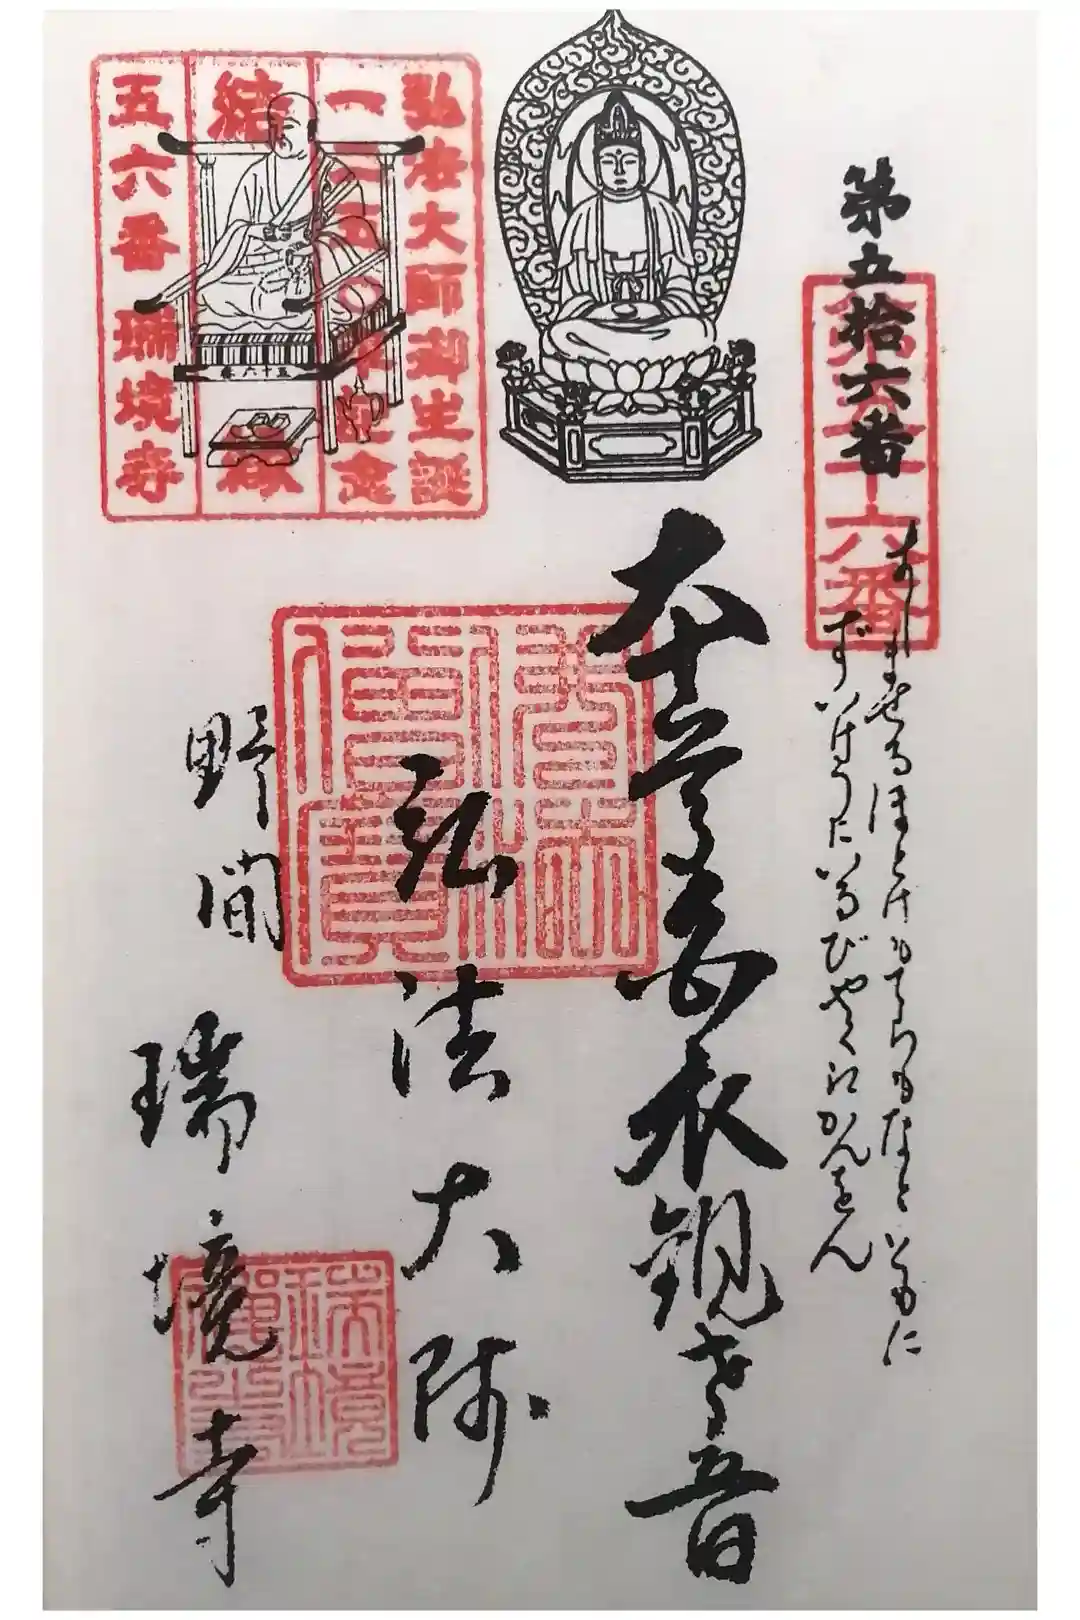 第五拾六番
第五十六番
ましませるほとけもてらもなとともに
ずいけうにいるびやくえかんをん
本尊白衣観世音
弘法大師
野間
瑞境寺
弘法大師御生誕
一二五〇年記念
結縁
五六番 瑞境寺
五十六番